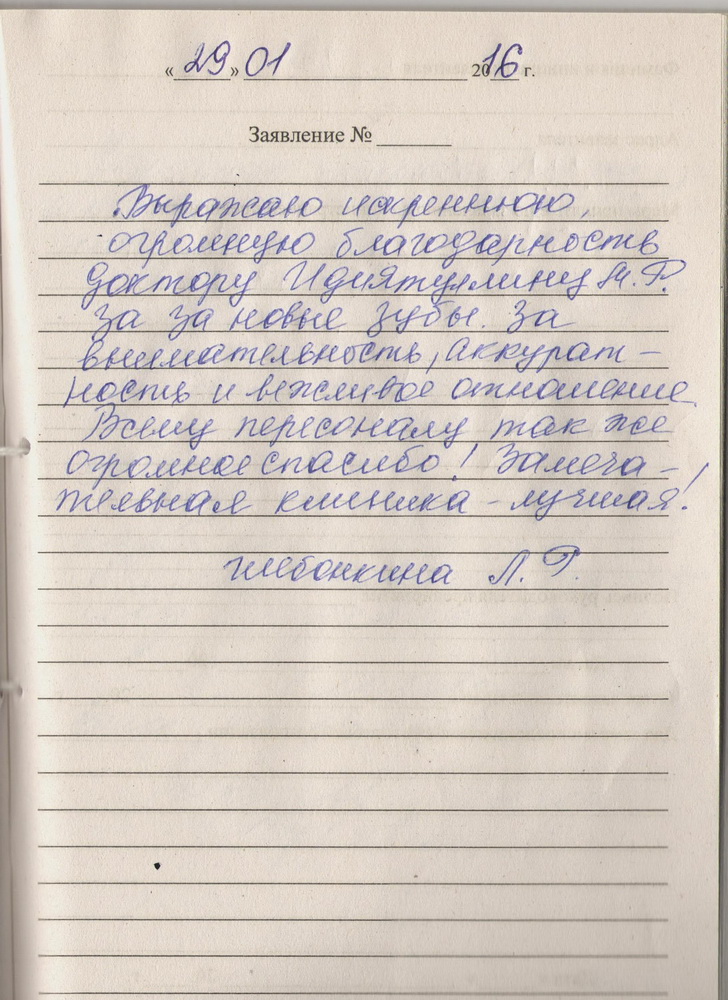 «29» 01 2016 г.
Заявление №
Выражаю искреннюю,
огромную благодарность
доктору Идиятуллину М.Р.
за за новые зубы. За
внимательность, аккурат-
ность и вежливое отношение.
Всему персоналу так же
огромное спасибо! Замеча-
тельная клиника - лучшая!
Л. Р.